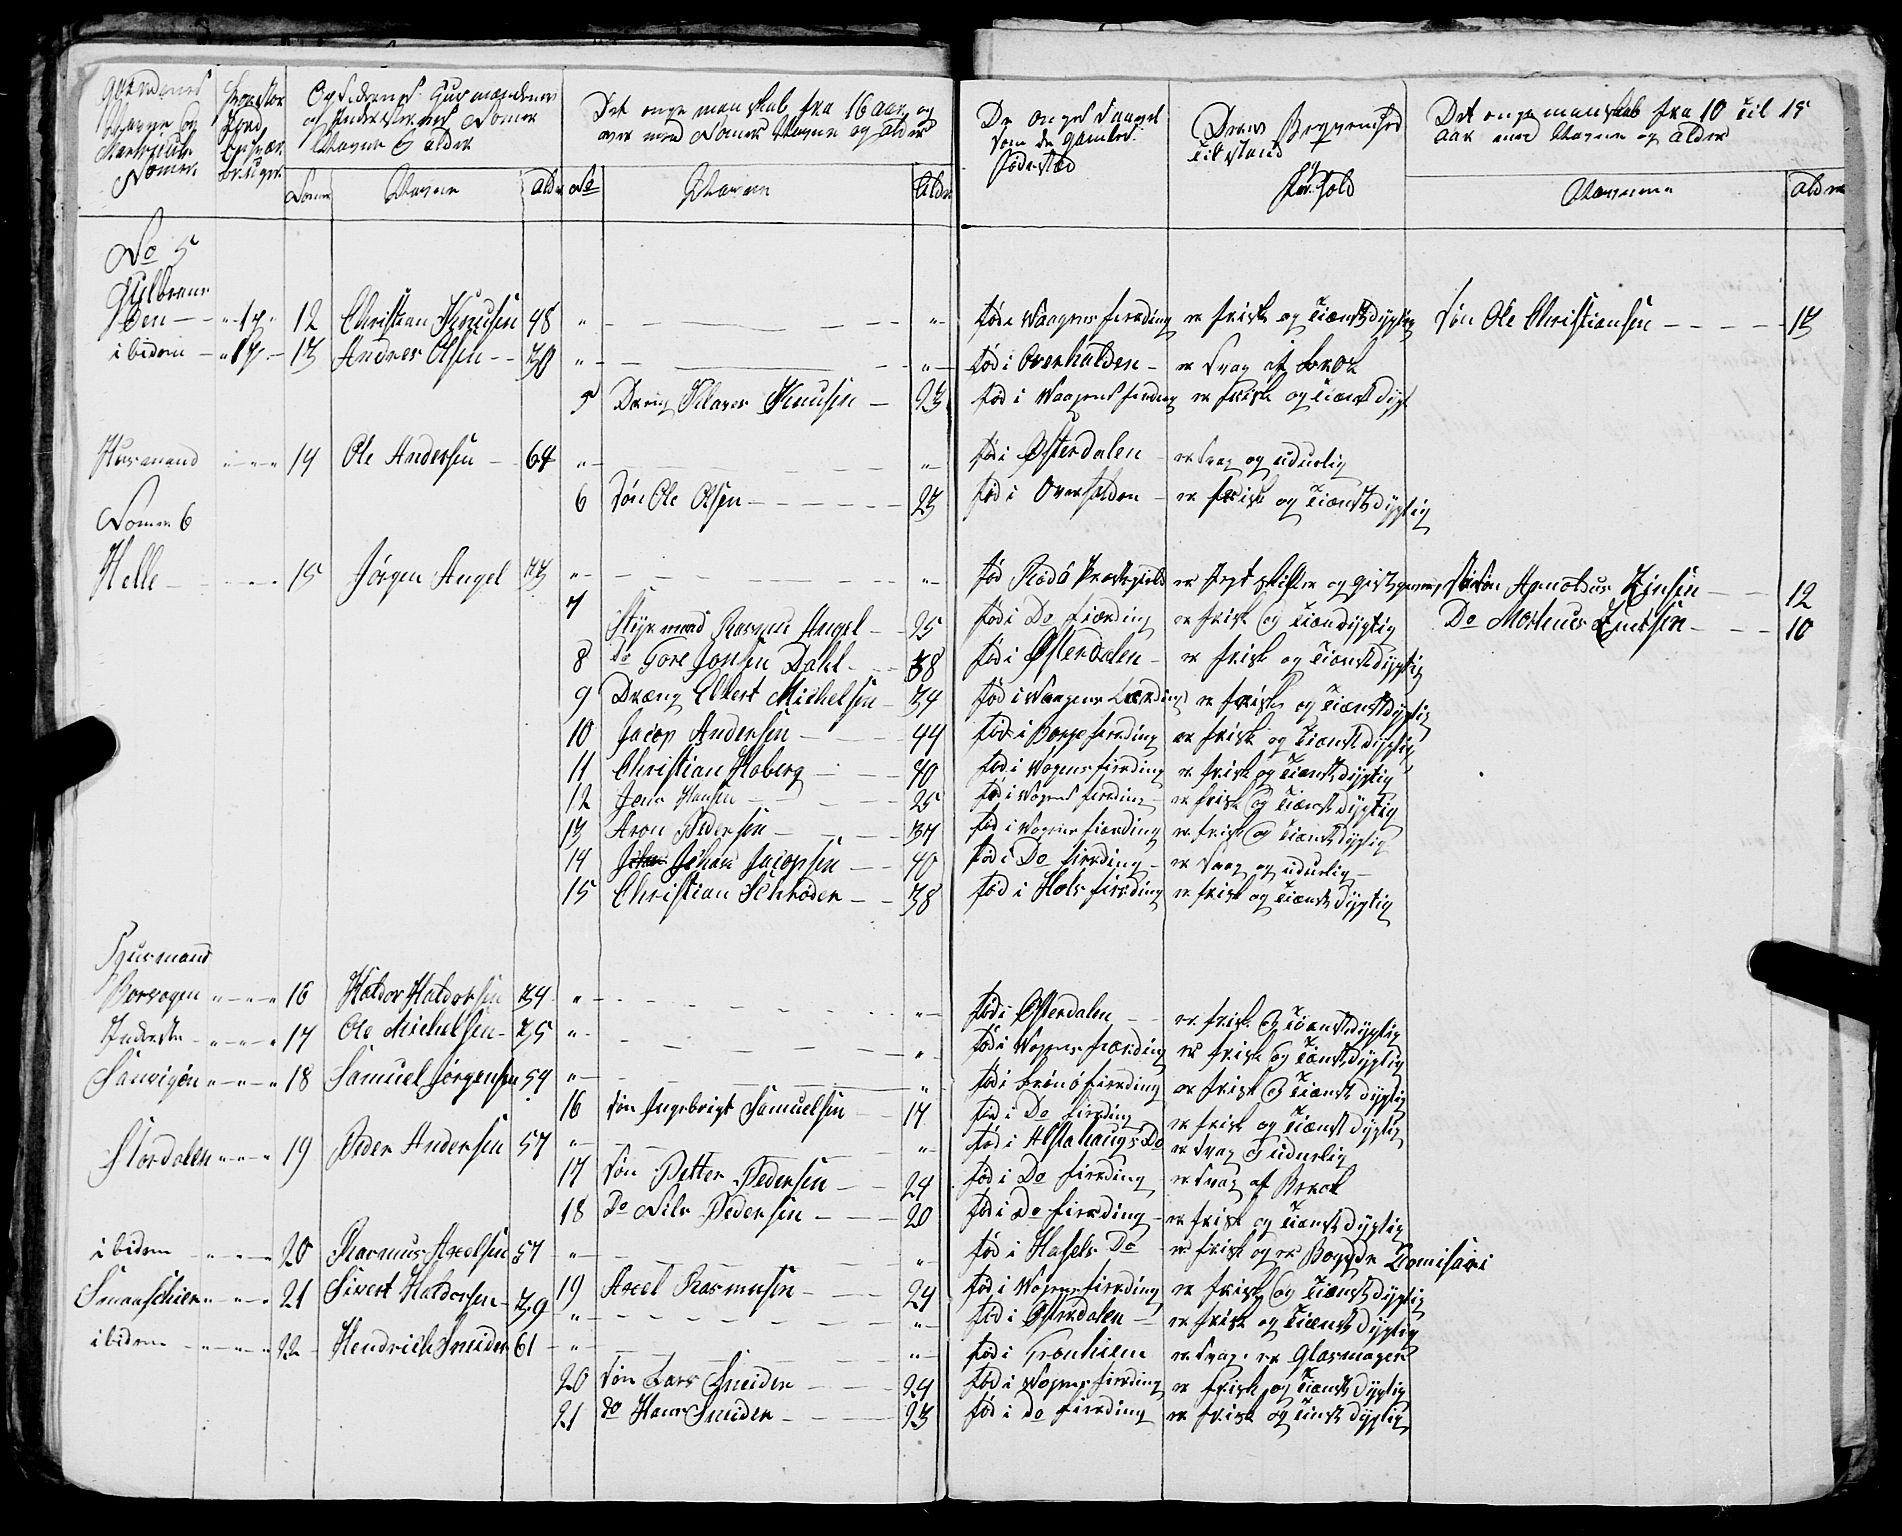 Det onge manskab fra 16 aar og
over med Nomer Nagne og alder
De onges saavel
som de gamles
fødested
Deres
tilstand
Det onge manskab fra 10 til 15
aar med Nagne og alder
Nomer Nagne alder No Nagne alder Nagnene alder
No 5
12 Christian Knusen 48 " fød i Waagens fierding er frisk og tienstdygtig Søn Ole Christiansen 13
ibidem 13 Andres Olsen 30 " fød i Overhalden er svag af brok
5 Dreng Knusen 23 fød i Waagens fierding er frisk og tienst dygt
Husmand 14 Ole Andersen 64 " fød i Østerdalen er svag og uduelig
6 Søn Ole Olsen 23 fød i Overhalden er frisk og tienstdygtig
Nomer 6
Helle 15 Jørgen Angel " fød Rødø Præstegield er og giestgever Arnoldus 12
7 Styrmand Rasmus Angel 25 fød i Do fierding er frisk og tiendygtig Do 10
8 Do Tore Jonsen Dahl 38 fød i Østerdalen er frisk og tienstdygtig
9 Dreng Ellert Michelsen 34 fød i Waagens fierding er frisk og tienstdygtig
10 Jacop Andersen 44 fød i Borge fierding er frisk og tienstdygtig
11 Christian Hoberg 40 fød i Vogens fierding er frisk og tienstdygtig
12 Jens Hansen 25 fød i Vogens fierding er frisk og tienstdygtig
13 Aron Pedersen 37 fød i Vogens fierding er frisk og tienstdygtig
14 Johan Jacopsen 40 fød i Do fierding er svag og uduelig
15 Christian Schrøder 38 fød i Hols fierding er frisk og tienstdygtig
Husmand
Børvogen 16 Haldor Haldorsen 34 " fød i Østerdalen er frisk og tienstdygtig
Inderste 17 Ole Michelsen 35 " fød i Vogens fierding er frisk og tienstdygtig
18 Samuel Jørgensen 54 " fød i brønø fierding er frisk og tienst dygtig
16 Søn Ingebrigt Samuelsen 17 fød i Do fierding er frisk og tienst dygtig
Stordalen 19 Peder Andersen 57 " fød i Alstahaugs Do er svag og uduelig
17 Søn Petter Pedersen 24 fød i Do fierding er svag af Brok
18 Do Nils Pedersen 20 fød i Do fierding er frisk og tienstdygtig
ibidem 20 Rasmus Axelsen 57 " fød i Hasels Do er frisk og er Bøygde
19 Axel Rasmusen 24 fød i Vogens fierding er frisk og tienstdygtig
21 Sivert Haldorsen 39 " fød i Østerdalen er frisk og tienst dygtig
ibidem 22 Hendrich Sneider 61 " fød i Tronhiem er svag er Glasmager
20 Søn Lars Sneider 24 fød i Vogens fierding er frisk og tienst dygtig
21 Do Hans Sneider 23 fød i Do fierding er frisk og tienst dygtig